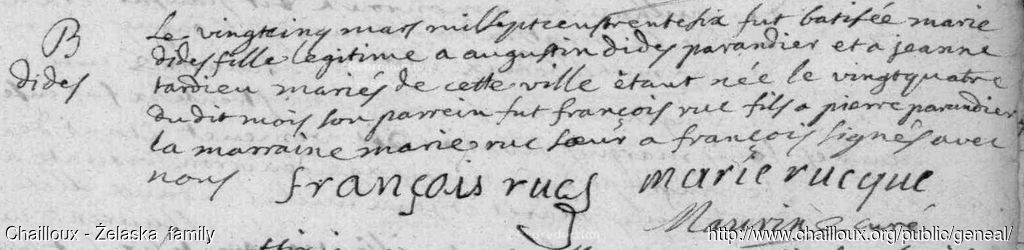 B
dides
Le vingtcinq mars mil sept cens trente six fut batisée marie
dides fille legitime a augustin dides parandier et a jeanne
tardieu mariés de cette ville étant née le vingtquatre
du dit mois son parrein fut françois ruc fils a pierre parandier
la marraine marie ruc sœur a françois signés avec
nous
françois rucs marie rucque
curé
Chailloux - Żelaska family
http://www.chailloux.org/public/geneal/